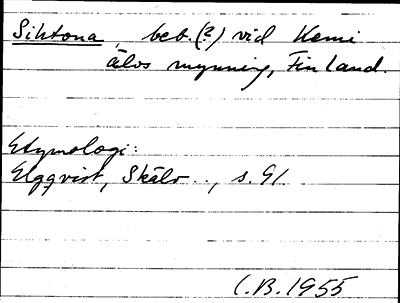 Sihtona, beb. (?) vid Kemi
älvs mynning, Finland.
Etymologi:
Elgqvist, Skälv.., s. 91
C.B. 1955